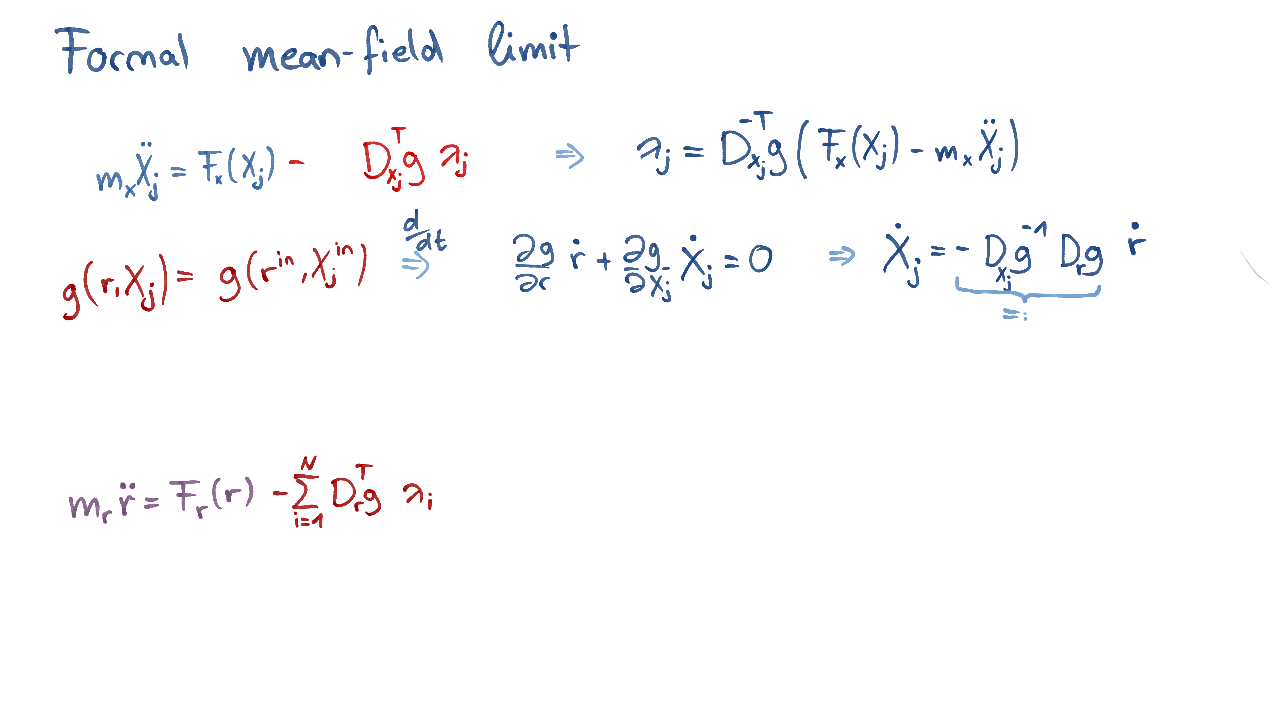 Formal mean-field limit
m_x Ẍ_j = F_x(X_j) - D_{X_j}^T g λ_j ⇒ λ_j = D_{X_j}^{-T} g ( F_x(X_j) - m_x Ẍ_j )
g(r, X_j) = g(r^{in}, X_j^{in}) d/dt ⇒ ∂g/∂r ṙ + ∂g/∂X_j Ẋ_j = 0 ⇒ Ẋ_j = - D_{X_j} g^{-1} D_r g ṙ
=:
m_r r̈ = F_r(r) - ∑_{i=1}^N D_r^T g λ_i